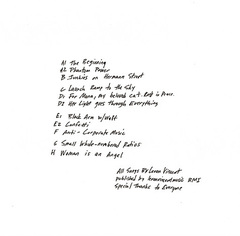 A1 The Beginning
A2 Phantom Power
B Junkies on Hermann Street
C Launch Ramp to the Sky
D1 For Mana, my beloved cat. Rest in Peace.
D2 Her Light goes through Everything
E1 Black Arm w/Wolf
E2 Confetti
F Anti-Corporate Music
G Small Whole-numbered Ratios
H Woman is an Angel
All Songs By Loren Vincent
published by music BMI
Special Thanks to Everyone